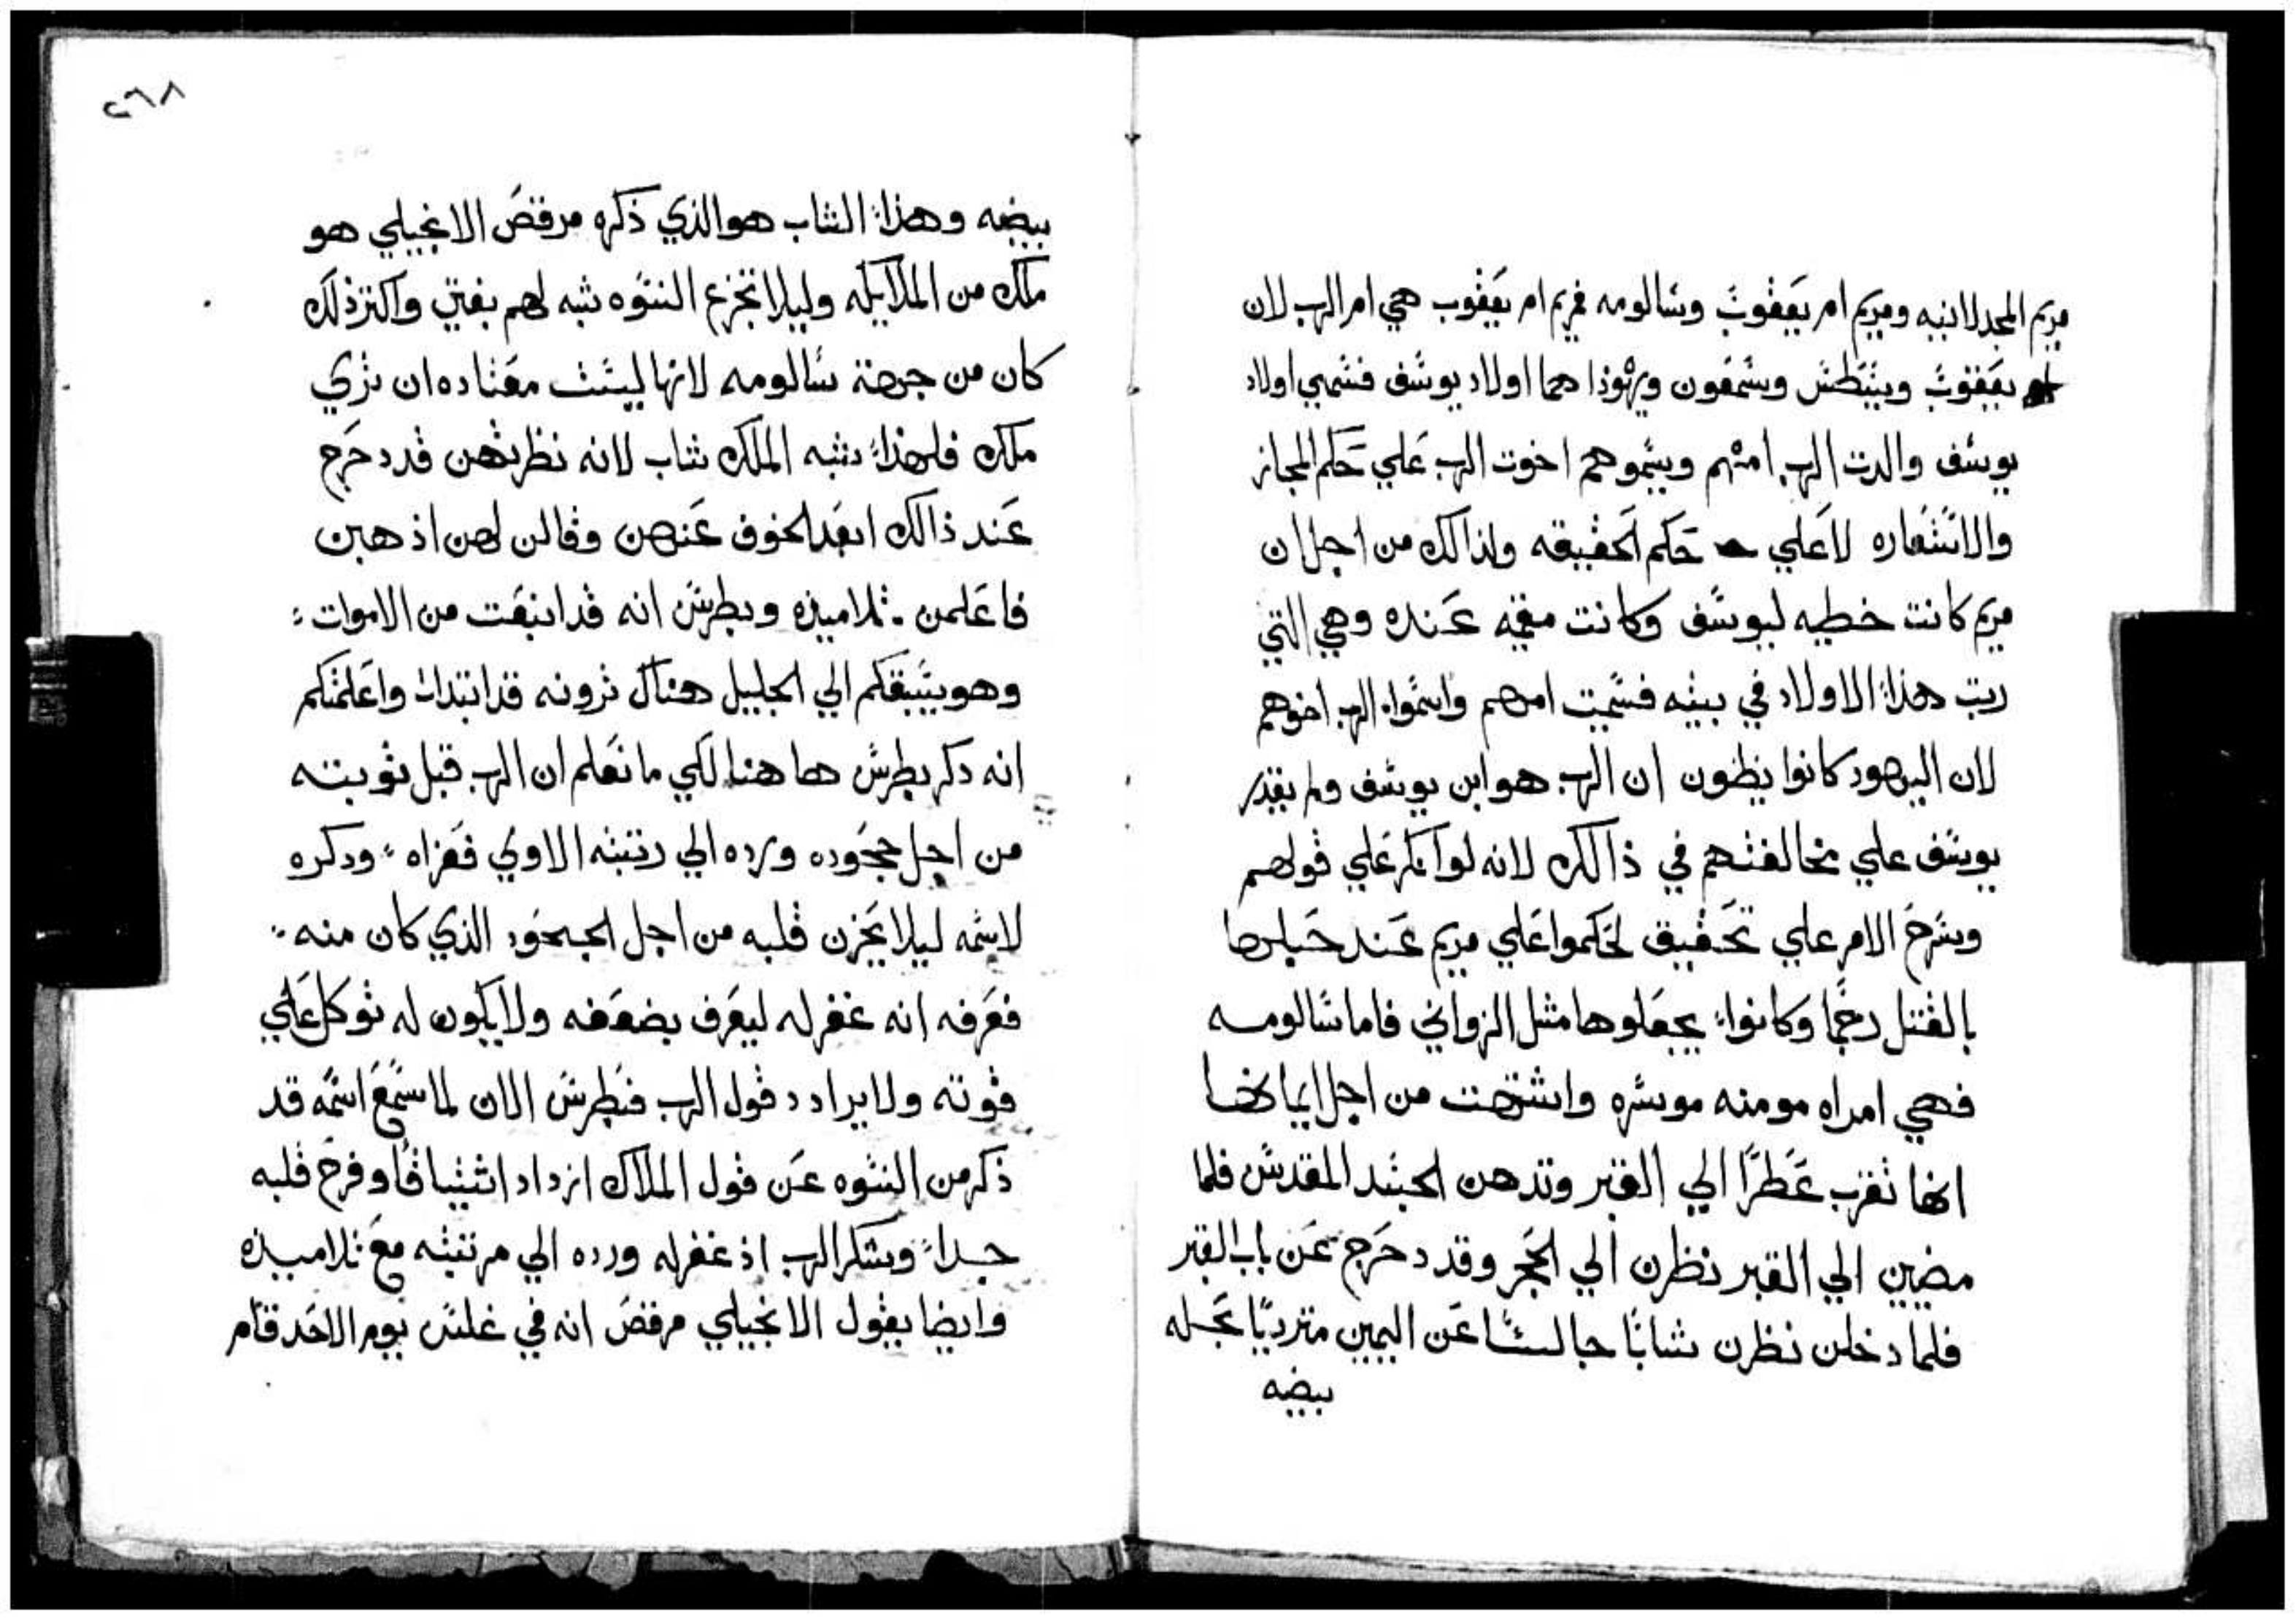 مريم المجدلانيه ومريم ام يعقوب وسالومه فمريم ام يعقوب هي ام الرب لان
يعقوب ويشطس وشمعون ويهوذا هما اولاد يوسف فسمي اولاد
يوسف والدت الرب امهم ويسموهم اخوت الرب علي حكم المجاز
والاستعاره لا علي حكم الحقيقه ولذالك من اجل ان
مريم كانت خطيه ليوسف وكانت مقيمه عنده وهي التي
ربت هذا الاولاد في بيته فسميت امهم واسموا الرب اخوهم
لان اليهود كانوا يظنون ان الرب هو ابن يوسف ولم يقدر
يوسف علي مخالفتهم في ذالك لانه لو انكر علي قولهم
وشرح الامر علي تحقيق لحكموا علي مريم عند حبلها
بالقتل رجما وكانوا يجعلوها مثل الزواني فاما سالومه
فهي امراه مومنه موسره واشتهت من اجل ايمانها
انها تقرب عطرًا الي القبر وتدهن الجسد المقدس فلما
مضين الي القبر نظرن الي الحجر وقد دحرج عن باب القبر
فلما دخلن نظرن شابًا جالسًا عن اليمين مترديًا بحله
بيضه
٢٦٨
بيضه وهذا الشاب هو الذي ذكره مرقص الانجيلي هو
ملك من الملايكه وليلا تجزع النسوه شبه لهم بفتي واكثر ذلك
كان من جهة سالومه لانها ليست معتاده ان تري
ملك فلهذا شبه الملك شاب لانه نظرتهن قد دحرج
عند ذالك ابعد الخوف عنهن وقال لهن اذهبن
فاعلمن تلاميذه وبطرس انه قد انبعت من الاموات
وهو يسبقكم الي الجليل هناك ترونه قد ابتدات واعلمتكم
انه دكر بطرس هاهنا لكي ما نعلم ان الرب قبل توبته
من اجل جحوده ورده الي رتبته الاولي فعزاه ودكره
لاسمه ليلا يحزن قلبه من اجل الجحود الذي كان منه
فعرفه انه غفر له ليعرف بضعفه ولا يكون له توكل علي
قوته ولا يرادد قول الرب فبطرس الان لما سمع اسمه قد
ذكر من النسوه عن قول الملاك ازداد اشتياقًا وفرح قلبه
جدًا وشكر الرب اذ غفر له ورده الي مرتبته مع تلاميذه
وايضا يقول الانجيلي مرقص انه في غلس يوم الاحد قام